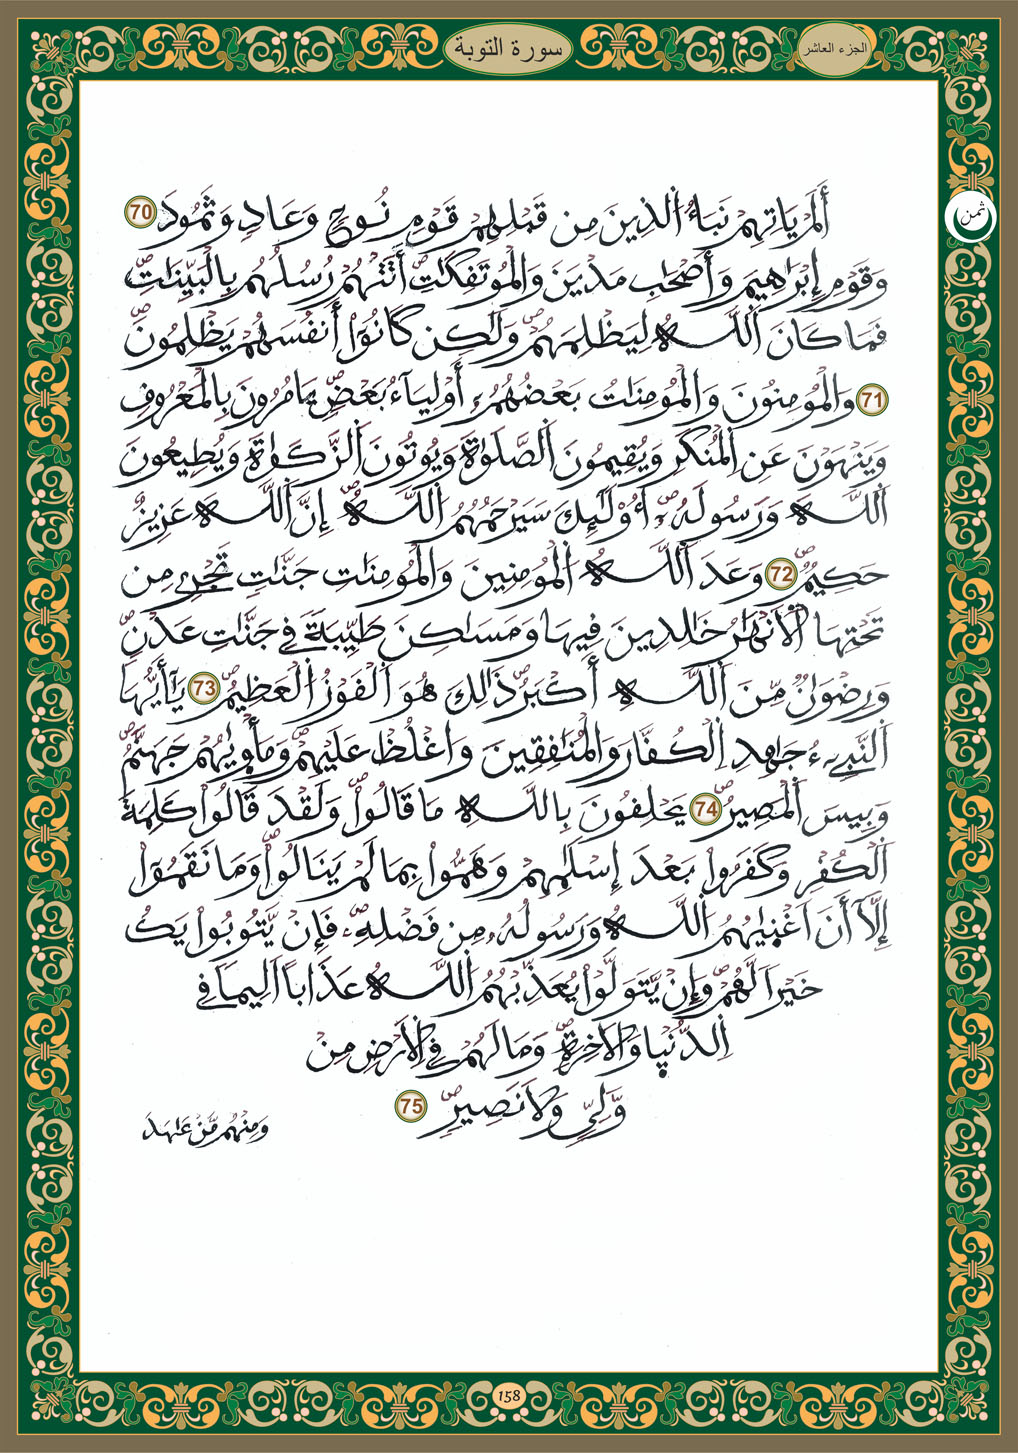 الجزء العاشر
سورة التوبة
ثمن
أَلَمْ يَاتِهِمْ نَبَأُ اُلذِينَ مِن قَبْلِهِمْ قَوْمِ نُوحٍ وَعَادٍ وَثَمُودَ 70
وَقَوْمِ إِبْرَٰهِيمَ وَأَصْحَٰبِ مَدْيَنَ وَالْمُوتَفِكَٰتِ أَتَتْهُمْ رُسُلُهُم بِالْبَيِّنَٰتِ
فَمَا كَانَ اَللَّهُ لِيَظْلِمَهُمْ وَلَٰكِن كَانُوٓاْ أَنفُسَهُمْ يَظْلِمُونَ
71 وَالْمُومِنُونَ وَالْمُومِنَٰتُ بَعْضُهُمُۥٓ أَوْلِيَآءُ بَعْضٍ يَامُرُونَ بِالْمَعْرُوفِ
وَيَنْهَوْنَ عَنِ اِلْمُنكَرِ وَيُقِيمُونَ اَلصَّلَوٰةَ وَيُوتُونَ اَلزَّكَوٰةَ وَيُطِيعُونَ
اَللَّهَ وَرَسُولَهُۥٓ أُوْلَٰٓئِكَ سَيَرْحَمُهُمُ اُللَّهُ إِنَّ اَللَّهَ عَزِيزٌ
حَكِيمٌ 72 وَعَدَ اَللَّهُ اُلْمُومِنِينَ وَالْمُومِنَٰتِ جَنَّٰتٍ تَجْرِے مِن
تَحْتِهَا اَلَانْهَٰرُ خَٰلِدِينَ فِيهَا وَمَسَٰكِنَ طَيِّبَةً فِے جَنَّٰتِ عَدْنٍ
وَرِضْوَٰنٌ مِّنَ اَللَّهِ أَكْبَرُ ذَٰلِكَ هُوَ اَلْفَوْزُ اُلْعَظِيمُ 73 يَٰٓأَيُّهَا
اَلنَّبِےٓءُ جَٰهِدِ اِلْكُفَّارَ وَالْمُنَٰفِقِينَ وَاغْلُظْ عَلَيْهِمْ وَمَأْوَيٰهُمْ جَهَنَّمُ
وَبِيسَ اَلْمَصِيرُ 74 يَحْلِفُونَ بِاللَّهِ مَا قَالُواْ وَلَقَدْ قَالُواْ كَلِمَةَ
اَلْكُفْرِ وَكَفَرُواْ بَعْدَ إِسْلَٰمِهِمْ وَهَمُّواْ بِمَا لَمْ يَنَالُواْ وَمَا نَقَمُوٓاْ
إِلَّآ أَنَ اَغْنَيٰهُمُ اُللَّهُ وَرَسُولُهُۥ مِن فَضْلِهِۦ فَإِنْ يَّتُوبُواْ يَكُ
خَيْراً لَّهُمْ وَإِنْ يَّتَوَلَّوْاْ يُعَذِّبْهُمُ اُللَّهُ عَذَاباً اَلِيماً فِے
اِلدُّنْيَا وَالَاخِرَةِ وَمَا لَهُمْ فِے اِلَارْضِ مِنْ
وَّلِيٍّ وَلَا نَصِيرٍ 75
وَمِنْهُم مَّنْ عَٰهَدَ
158